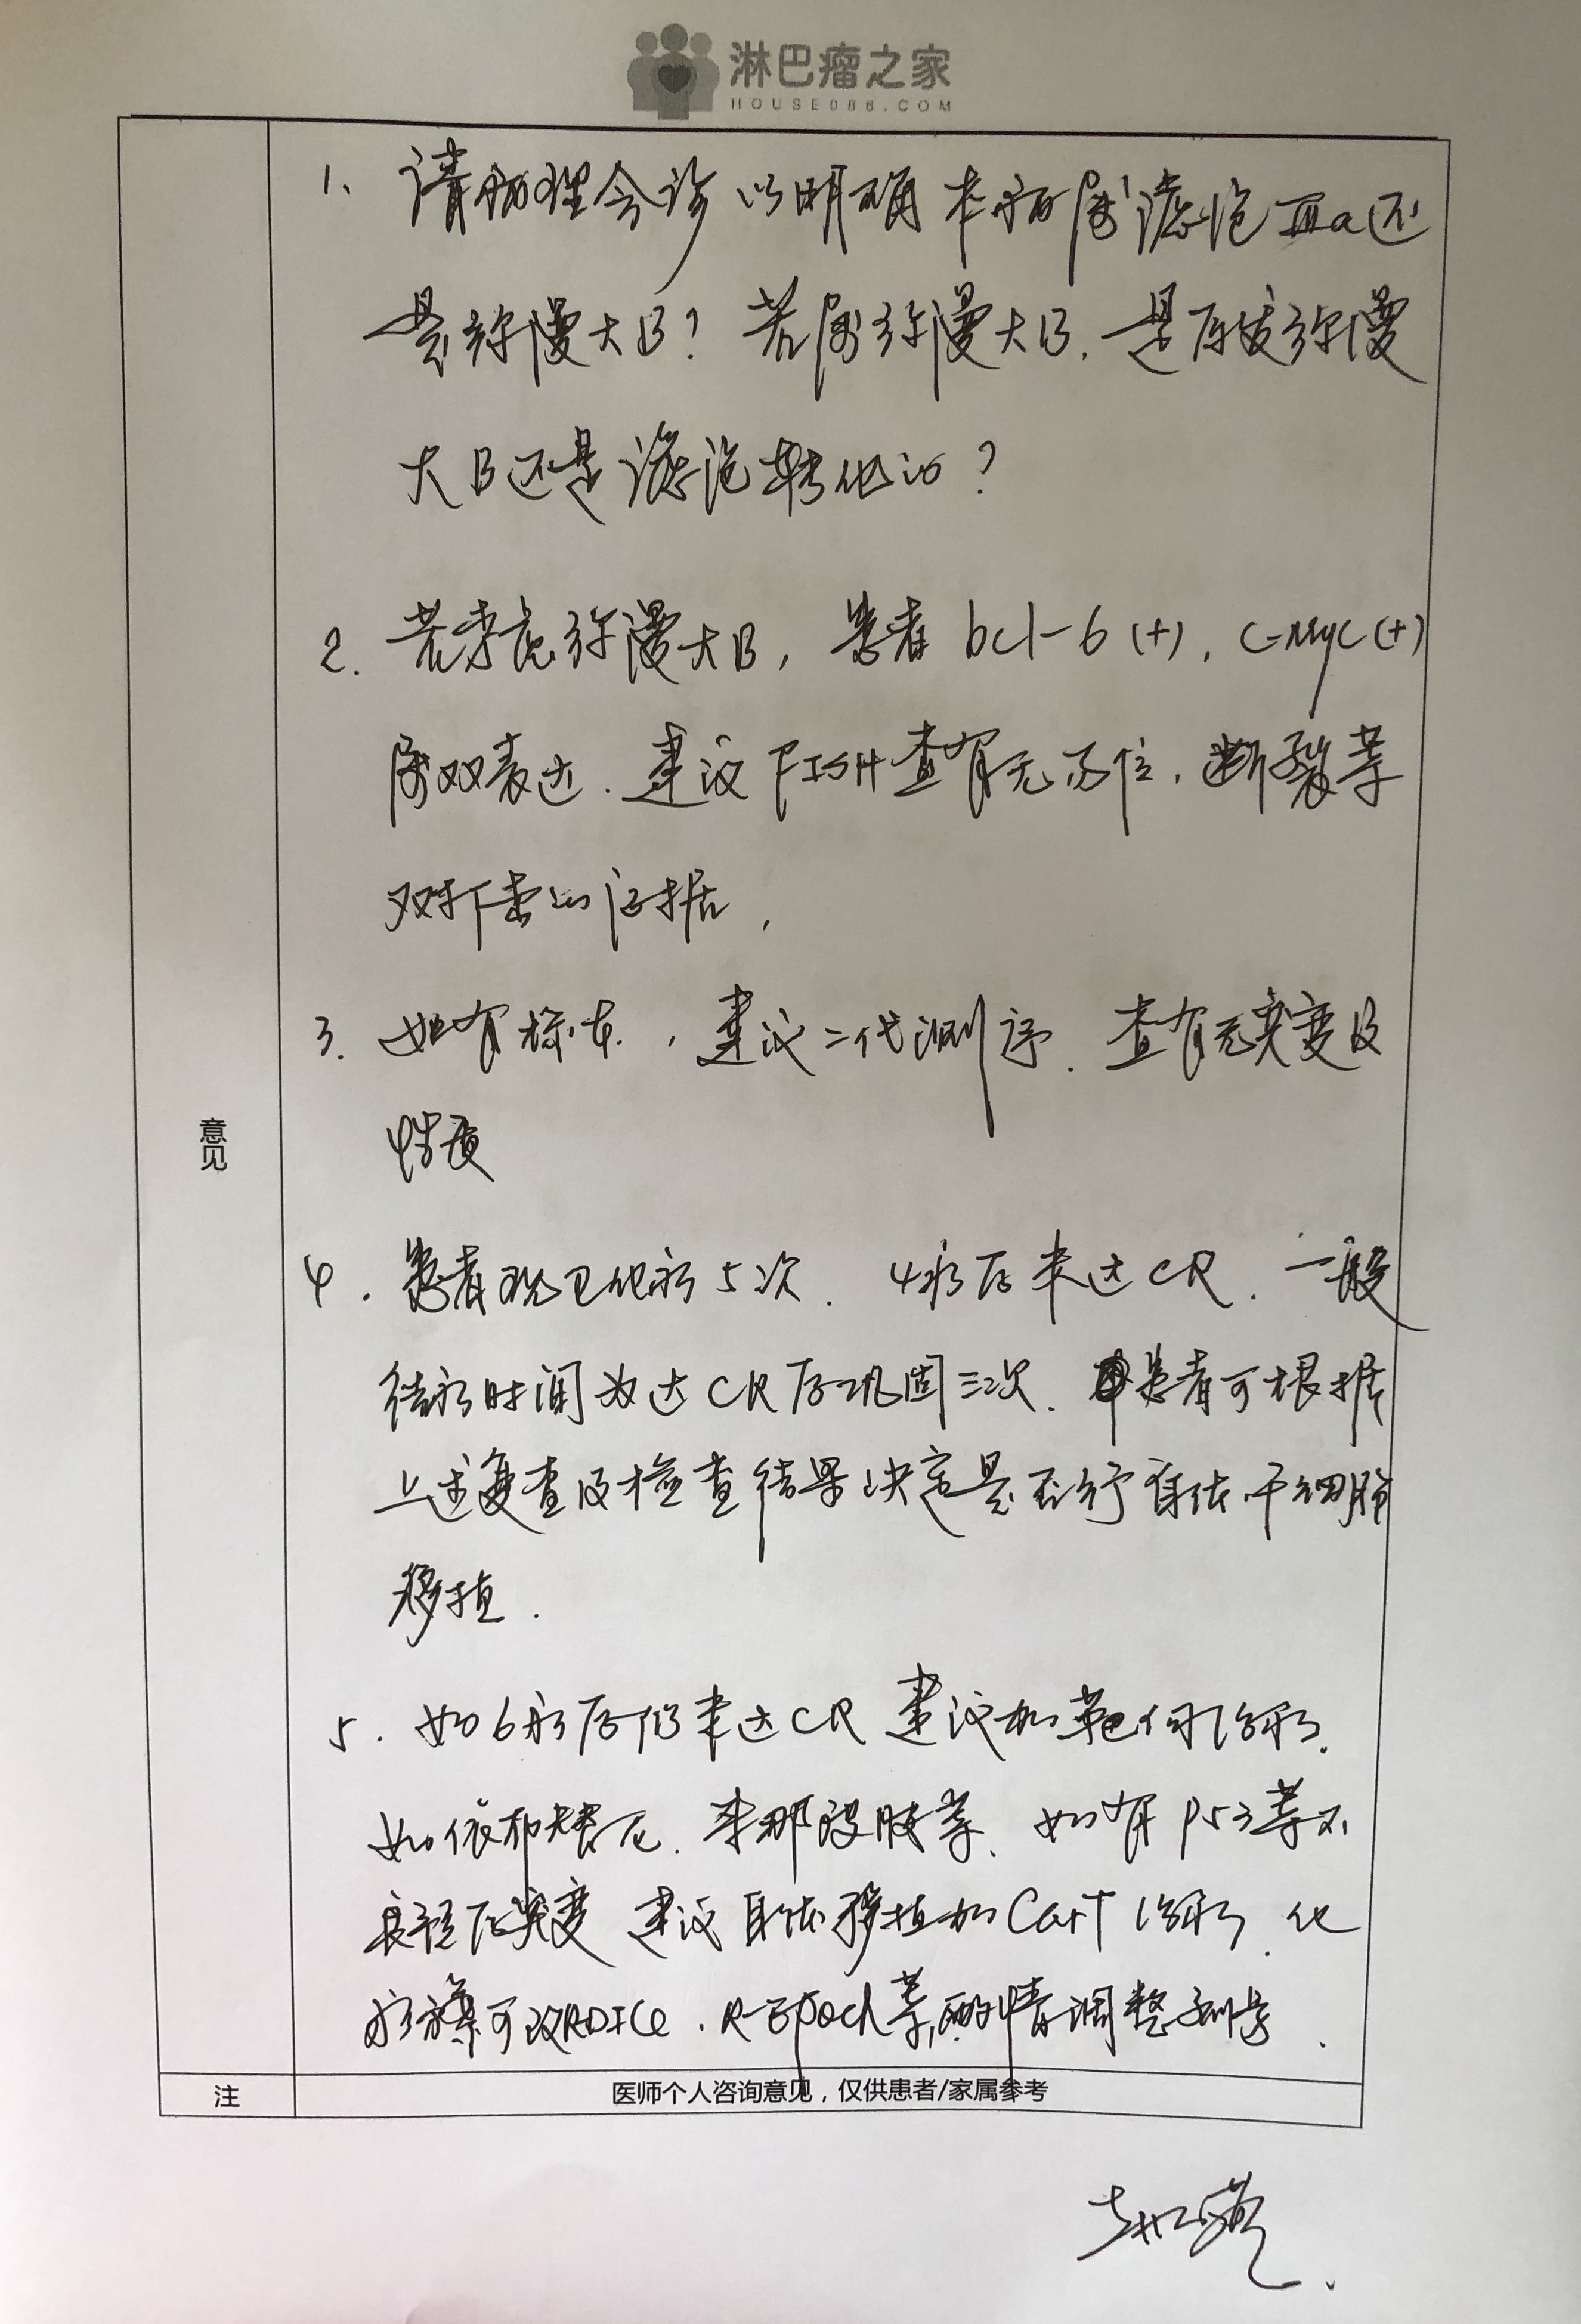 淋巴瘤之家
HOUSE086.COM
1、请病理会诊以明确本病属滤泡Ⅲa还
是弥漫大B？若属弥漫大B，是原发弥漫
大B还是滤泡转化的？
2.若考虑弥漫大B，患者bcl-6(+)，C-Myc(+)
属双表达．建议FISH查有无易位，断裂等
双打击的证据，
3.如有标本，建议二代测序．查有无突变及
性质
意见
4.患者现已化疗5次．4疗后未达CR．一般
结疗时间为达CR后巩固三次．患者可根据
上述复查及检查结果决定是否行自体干细胞
移植．
5.如6疗后仍未达CR建议加靶向治疗．
如依布替尼．来那度胺等、如有P53等不
良预后突变 建议自体移植加CarT治疗．化
疗方案可改RDICE．R-EPOCH等，酌情调整剂量．
注
医师个人咨询意见，仅供患者/家属参考